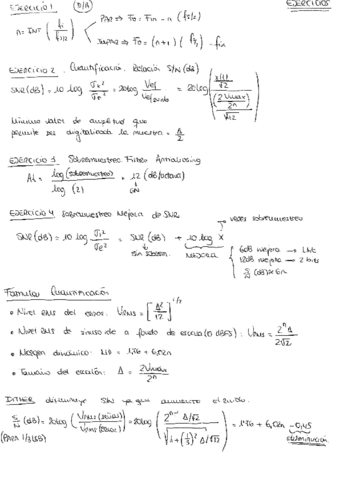 EJERCICIO 1 D/A EJERCICIOS
n = INT ( fi / fs/2 ) PAR ⇒ Fo = Fin - n (fs/2)
IMPAR ⇒ Fo = (n+1) ( fs/2 ) - fin
EJERCICIO 2 Cuantificación. Relación S/N (dB)
SNR (dB) = 10 log σx² / σe² = 20 log Vef / Vef = 20 log
Mínimo valor de amplitud que
permite ser digitalizada la muestra = Δ/2
EJERCICIO 3 Sobremuestreo. Filtro Antialiasing
log (sobremuestreo) / log (2) · 12 (dB/octava)
6N
EJERCICIO 4 sobremuestreo Mejora de SNR
veces sobremuestreo
SNR (dB) = 10 log σx² / σe² = SNR (dB) + 10 log X
MEJORA
6dB mejora → 1 bit
12dB mejora → 2 bits
Fórmulas Cuantificación
• Nivel RMS del error: Vrms = [ Δ² / 12 ]^1/2
• Nivel RMS de sinusoide a fondo de escala (0 dBFS): Vrms = 2ⁿ Δ / 2√2
• Margen dinámico: MD = 1,76 + 6,02n
• Tamaño del escalón: Δ = 2Vmax / 2ⁿ
DITHER disminuye S/N ya que aumenta el ruido.
S/N (dB) = 20 log ( Vrms (señal) / Vrms (error) ) = 20 log = 1,76 + 6,02n - 0,45
(PARA 1/3 LSB) disminución